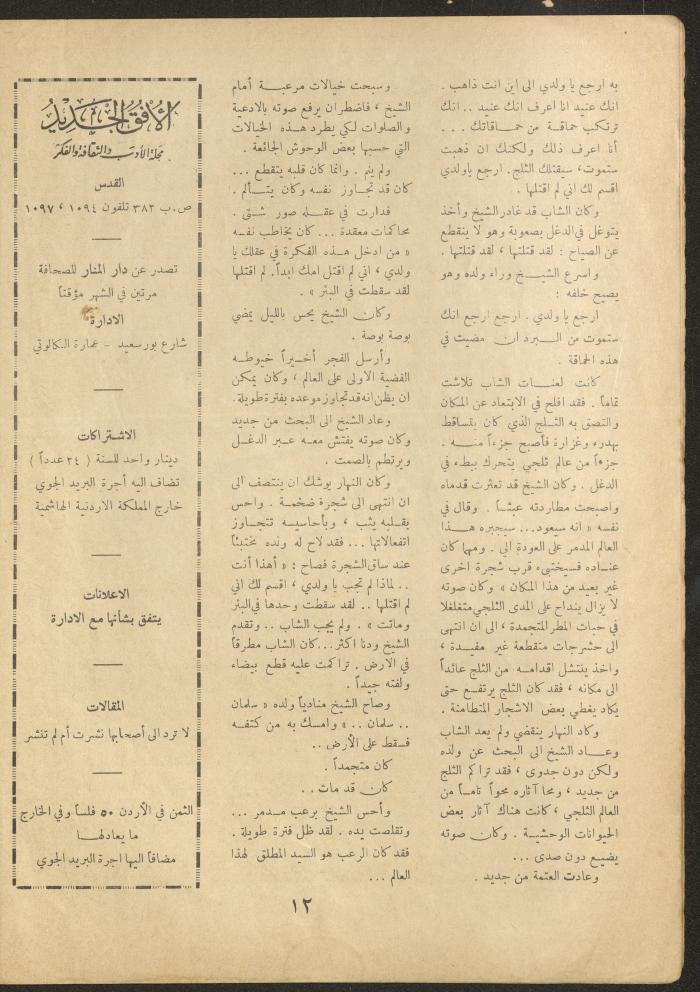 به ارجع يا ولدي الى اين انت ذاهب .
انك عنيد انا اعرف انك عنيد .. انك
ترتكب حماقة من حماقاتك ...
أنا اعرف ذلك ولكنك ان ذهبت
ستموت، سيقتلك الثلج. ارجع ياولدي
اقسم لك اني لم اقتلها .
وكان الشاب قد غادر الشيخ وأخذ
يتوغل في الدغل بصعوبة وهو لا ينقطع
عن الصياح : لقد قتلتها ، لقد قتلتها .
واسرع الشيخ وراء ولده وهو
يصيح خلفه :
ارجع يا ولدي . ارجع ارجع انك
ستموت من البرد ان مضيت في
هذه الحماقة .
كانت لعنات الشاب تلاشت
تماماً . فقد افلح في الابتعاد عن المكان
والتصق به الثلج الذي كان يتساقط
بهدوء وغزارة فأصبح جزءاً منه .
جزءاً من عالم ثلجي يتحرك ببطء في
الدغل . وكان الشيخ قد تعثرت قدماه
واصبحت مطاردته عبثاً . وقال في
نفسه « انه سيعود... سيجبره هذا
العالم المدمر على العودة الي . ومهما كان
عناده فسيختبىء قرب شجرة اخرى
غير بعيد من هذا المكان » وكان صوته
لا يزال ينداح على المدى الثلجي متغلغلا
في حبات المطر المتجمدة ، الى ان انتهى
الى حشرجات متقطعة غير مفيدة ،
واخذ ينتشل اقدامه من الثلج عائداً
الى مكانه ، فقد كان الثلج يرتفع حتى
يكاد يغطي بعض الاشجار المتطامنة .
وكاد النهار ينقضي ولم يعد الشاب
وعاد الشيخ الى البحث عن ولده
ولكن دون جدوى ، فقد تراكم الثلج
من جديد ، ومحا آثاره محواً تاماً من
العالم الثلجي ، كانت هناك آثار بعض
الحيوانات الوحشية . وكان صوته
يضيع دون صدى ...
وعادت العتمة من جديد .
وسبحت خيالات مرعبة أمام
الشيخ ، فاضطر ان يرفع صوته بالادعية
والصلوات لكي يطرد هذه الخيالات
التي حسبها بعض الوحوش الجائعة .
ولم ينم . وانما كان قلبه يتقطع ...
كان قد تجاوز نفسه وكان يتألم .
فدارت في عقله صور شتى .
محاكمات معقدة ... كان يخاطب نفسه
« من ادخل هذه الفكرة في عقلك يا
ولدي ، اني لم اقتل امك ابداً. لم اقتلها
لقد سقطت في البئر » .
وكان الشيخ يحس بالليل يمضي
بوصة بوصة .
وأرسل الفجر أخيراً خيوطه
الفضية الاولى على العالم ، وكان يمكن
ان يظن انه قد تجاوز موعده بفترة طويلة.
وعاد الشيخ الى البحث من جديد
وكان صوته يفتش معه عبر الدغل
ويرتطم بالصمت .
وكان النهار يوشك ان ينتصف الى
ان انتهى الى شجرة ضخمة . واحس
بقلبه يثب ، وبأحاسيسه تتجاوز
انفعالاتها ... فقد لاح له ولده مختبئاً
عند ساق الشجرة فصاح : « أهذا أنت
.. لماذا لم تجب يا ولدي ، اقسم لك اني
لم اقتلها .. لقد سقطت وحدها في البئر
وماتت » . ولم يجب الشاب .. وتقدم
الشيخ ودنا اكثر... كان الشاب مطرقاً
في الارض . تراكمت عليه قطع بيضاء
ولفته جيداً .
وصاح الشيخ منادياً ولده « سلمان
.. سلمان .. » وامسك به من كتفه
فسقط على الأرض ..
كان متجمداً .
كان قد مات ..
وأحس الشيخ برعب مدمر ...
وتقلصت يده . لقد ظل فترة طويلة .
فقد كان الرعب هو السيد المطلق لهذا
العالم ...
الأفق الجديد
مجلة الأدب والثقافة والفكر
القدس
ص.ب ٣٨٢ تلفون ١٠٩٤ ، ١٠٩٧
تصدر عن دار المنار للصحافة
مرتين في الشهر مؤقتاً
الادارة
شارع بور سعيد - عمارة الكالوتي
الاشتراكات
دينار واحد للسنة ( ٢٤ عدداً )
تضاف اليه أجرة البريد الجوي
خارج المملكة الاردنية الهاشمية
الاعلانات
يتفق بشأنها مع الادارة
المقالات
لا ترد الى أصحابها نشرت أم لم تنشر
الثمن في الأردن ٥٠ فلساً وفي الخارج
ما يعادلها
مضافاً اليها اجرة البريد الجوي
١٢